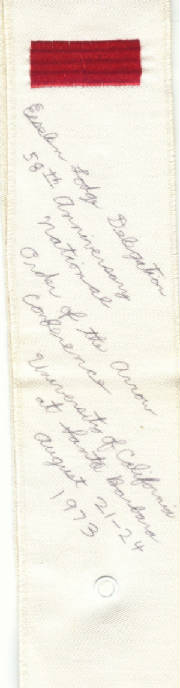 Esselen Lodge Delegation
58th Anniversary
National
Order of the Arrow
Conference
University of California
at Santa Barbara
August 21-24
1973